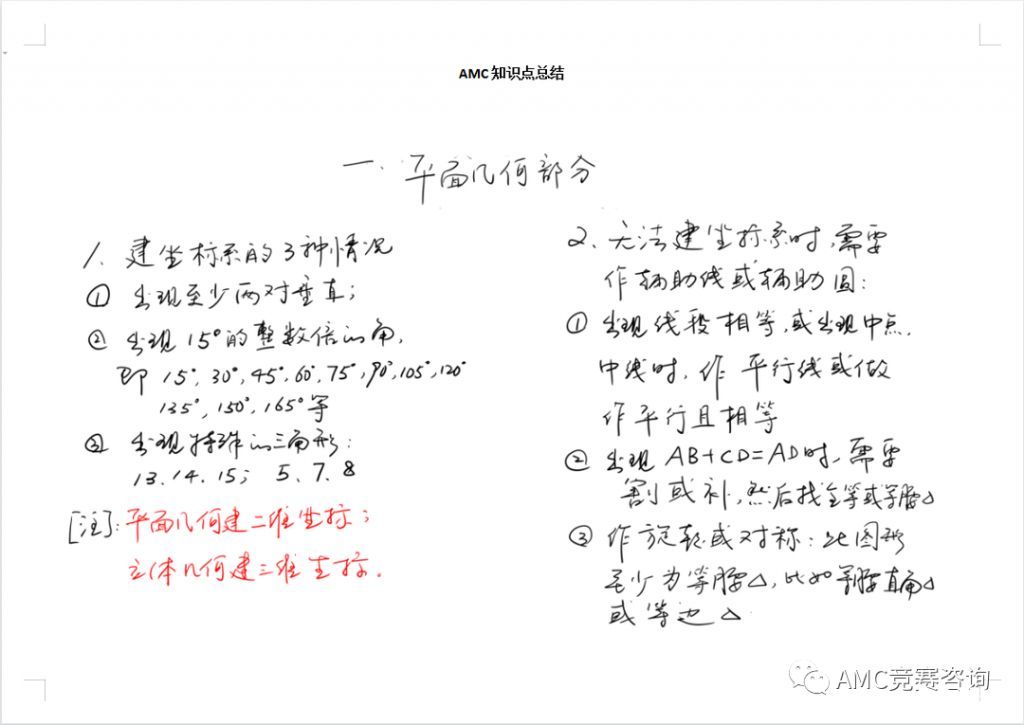 AMC知识点总结
一.平面几何部分
1、建坐标系的3种情况
① 出现至少两对垂直；
② 出现15°的整数倍的角，
即 15°,30°,45°,60°,75°,90°,105°,120°
135°,150°,165°等
③ 出现特殊的三角形：
13.14.15； 5、7.8
[注]:平面几何建二维坐标；
立体几何建三维坐标.
2、无法建坐标系时,需要
作辅助线或辅助圆：
① 出现线段相等,或出现中点.
中线时,作平行线或做
作平行且相等
② 出现AB+CD=AD时,需要
割或补,然后找全等或等腰△
③ 作旋转或对称：此图形
至少为等腰△,比如等腰直角△
或等边△
AMC竞赛咨询